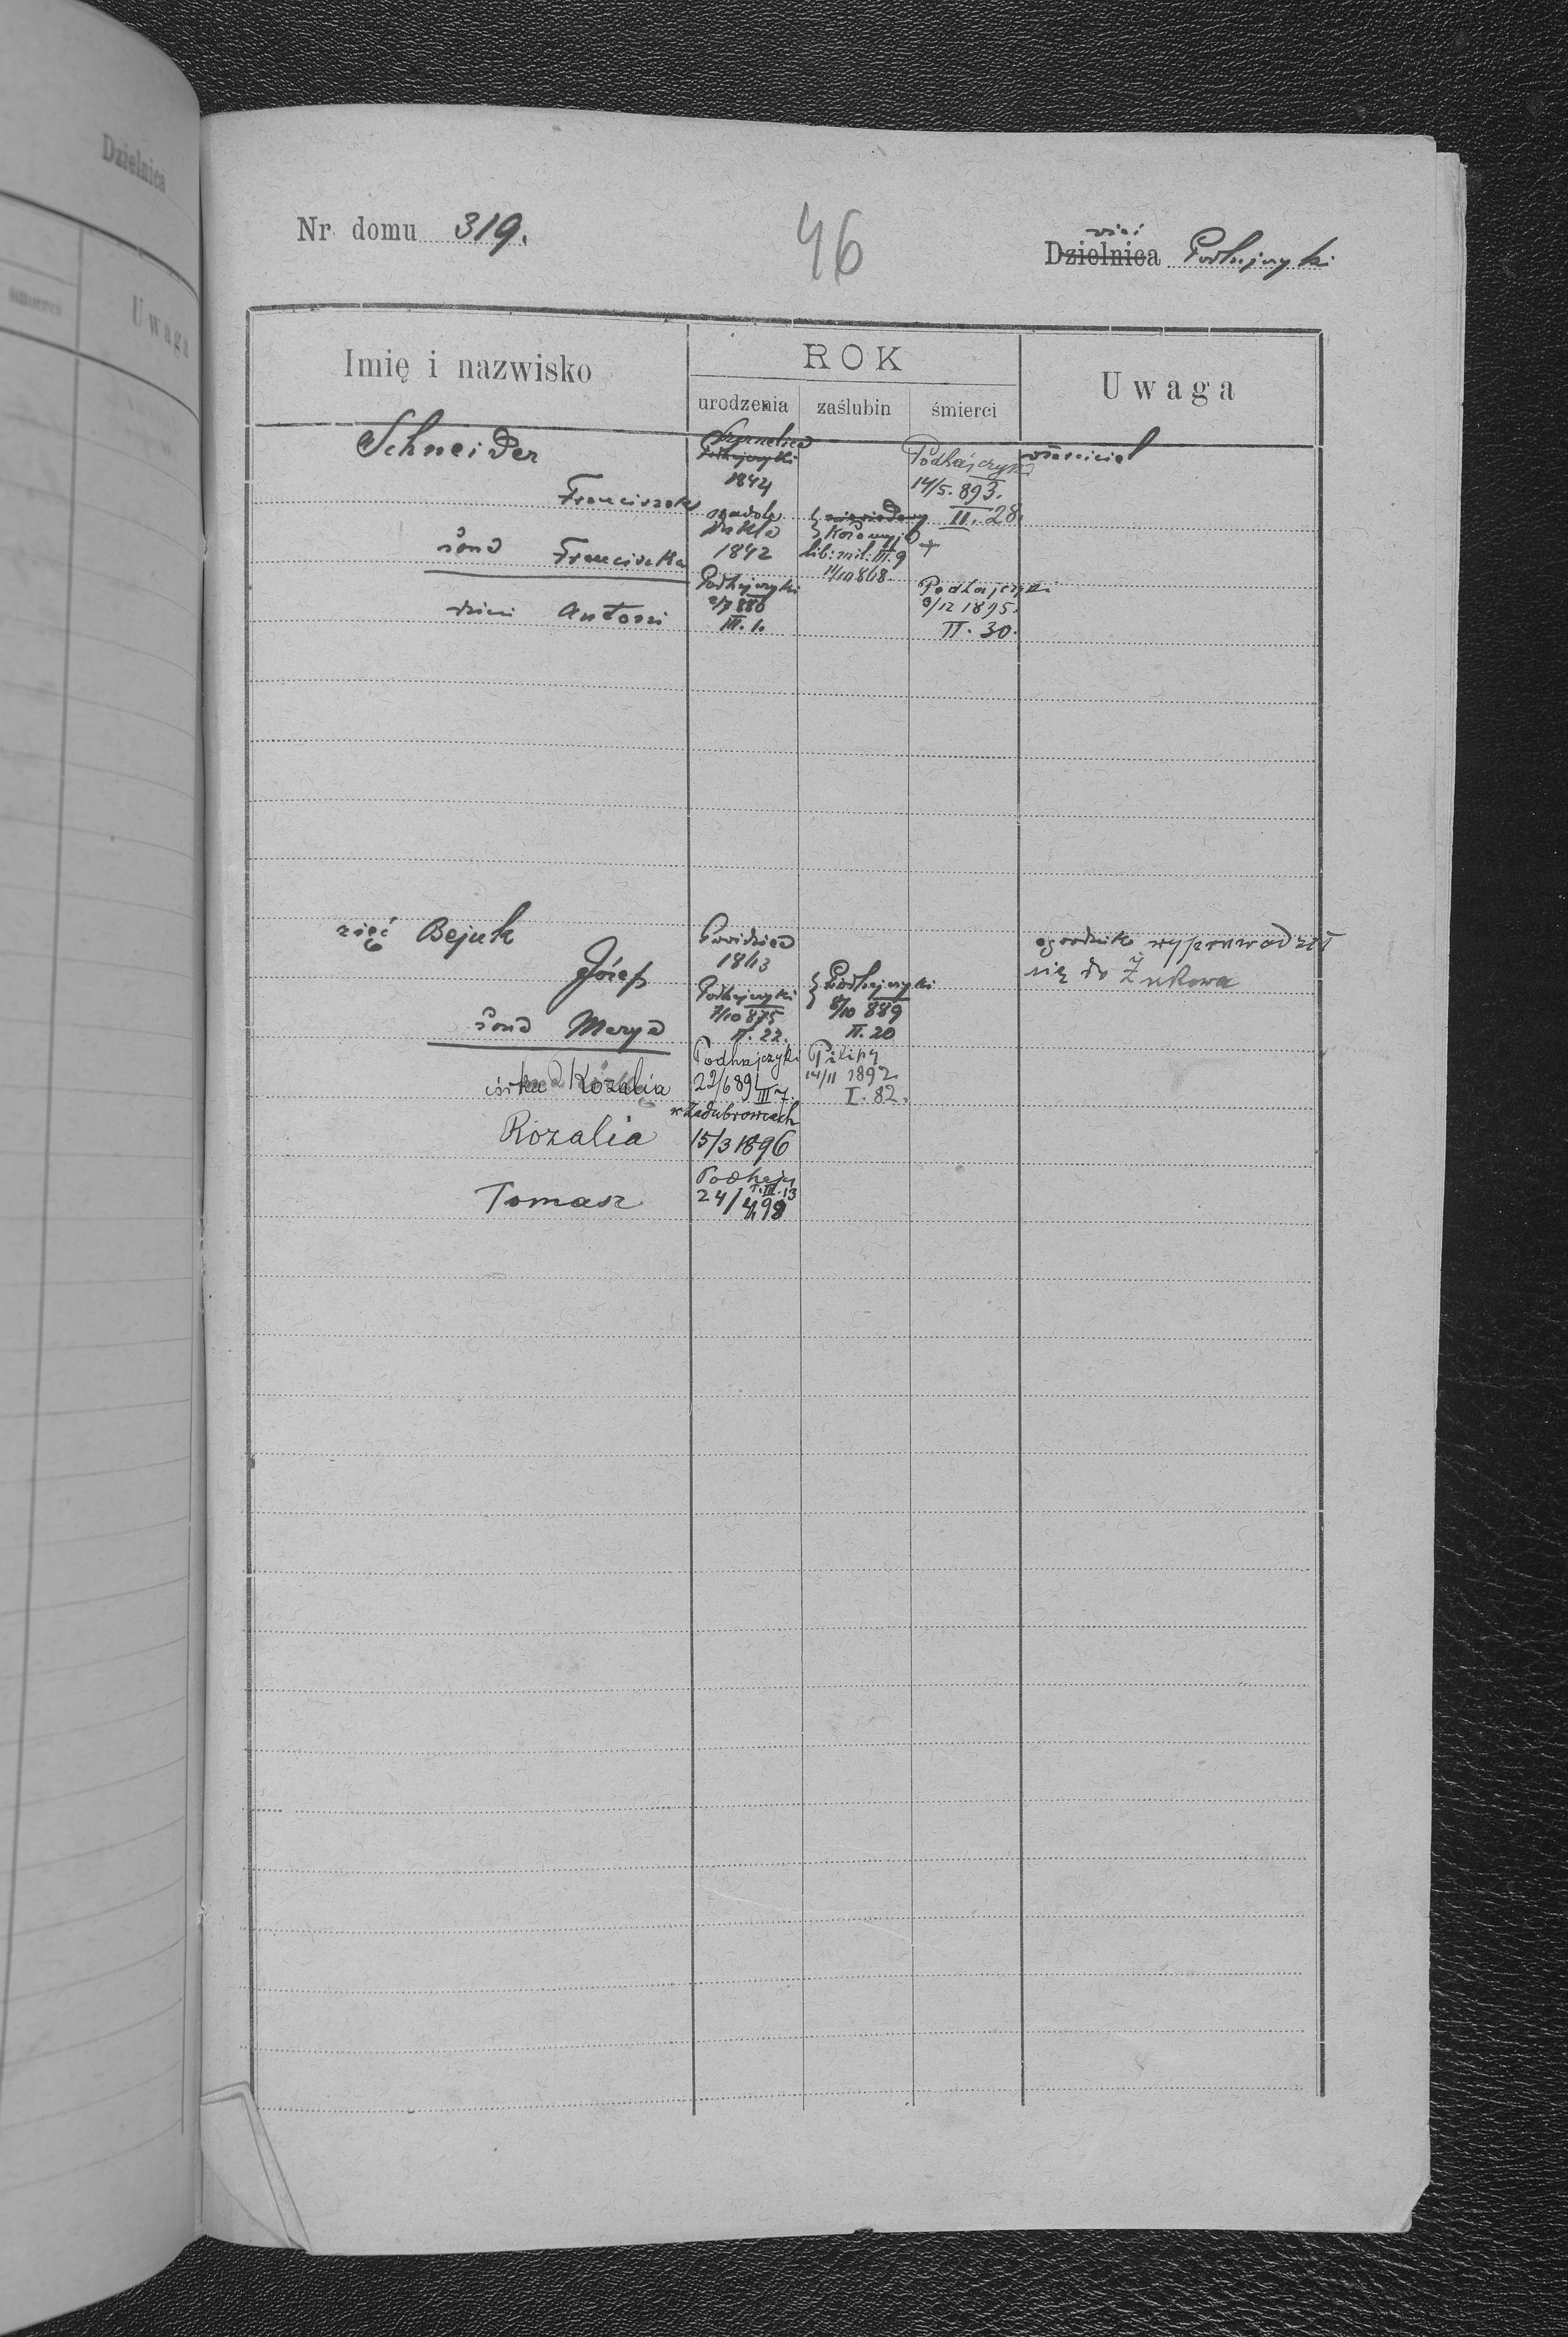 Dzielnica
śmierci
Uwaga
Nr domu 319.
46
wieś
Dzielnica Podhajczyki
Imię i nazwisko
ROK
urodzenia
zaślubin
śmierci
Uwaga
Schneider
Franciszek
Podhajczyki
1844
Podhajczyki
14/5. 893.
II. 28.
właściciel
żona Franciszka
1842
Kołomyja
lib: mil: III. 9
14/10 868.
+
dzieci Antoni
Podhajczyki
886
III. 1.
Podhajczyki
6/12 1895.
II. 30.
zięć Bejuk
Józef
1843
ogrodnik wyprowadził
się do Żukowa
żona Marya
Podhajczyki
7/10 875
II. 22.
Podhajczyki
8/10 889
II. 20
córka Rozalia
Podhajczyki
22/6 891
III 7.
Pilipy
14/11 1892
I. 82.
Rozalia
w Zadubrowcach
15/3 1896
Tomasz
Podhajcz
T. III. 13
24/4 98